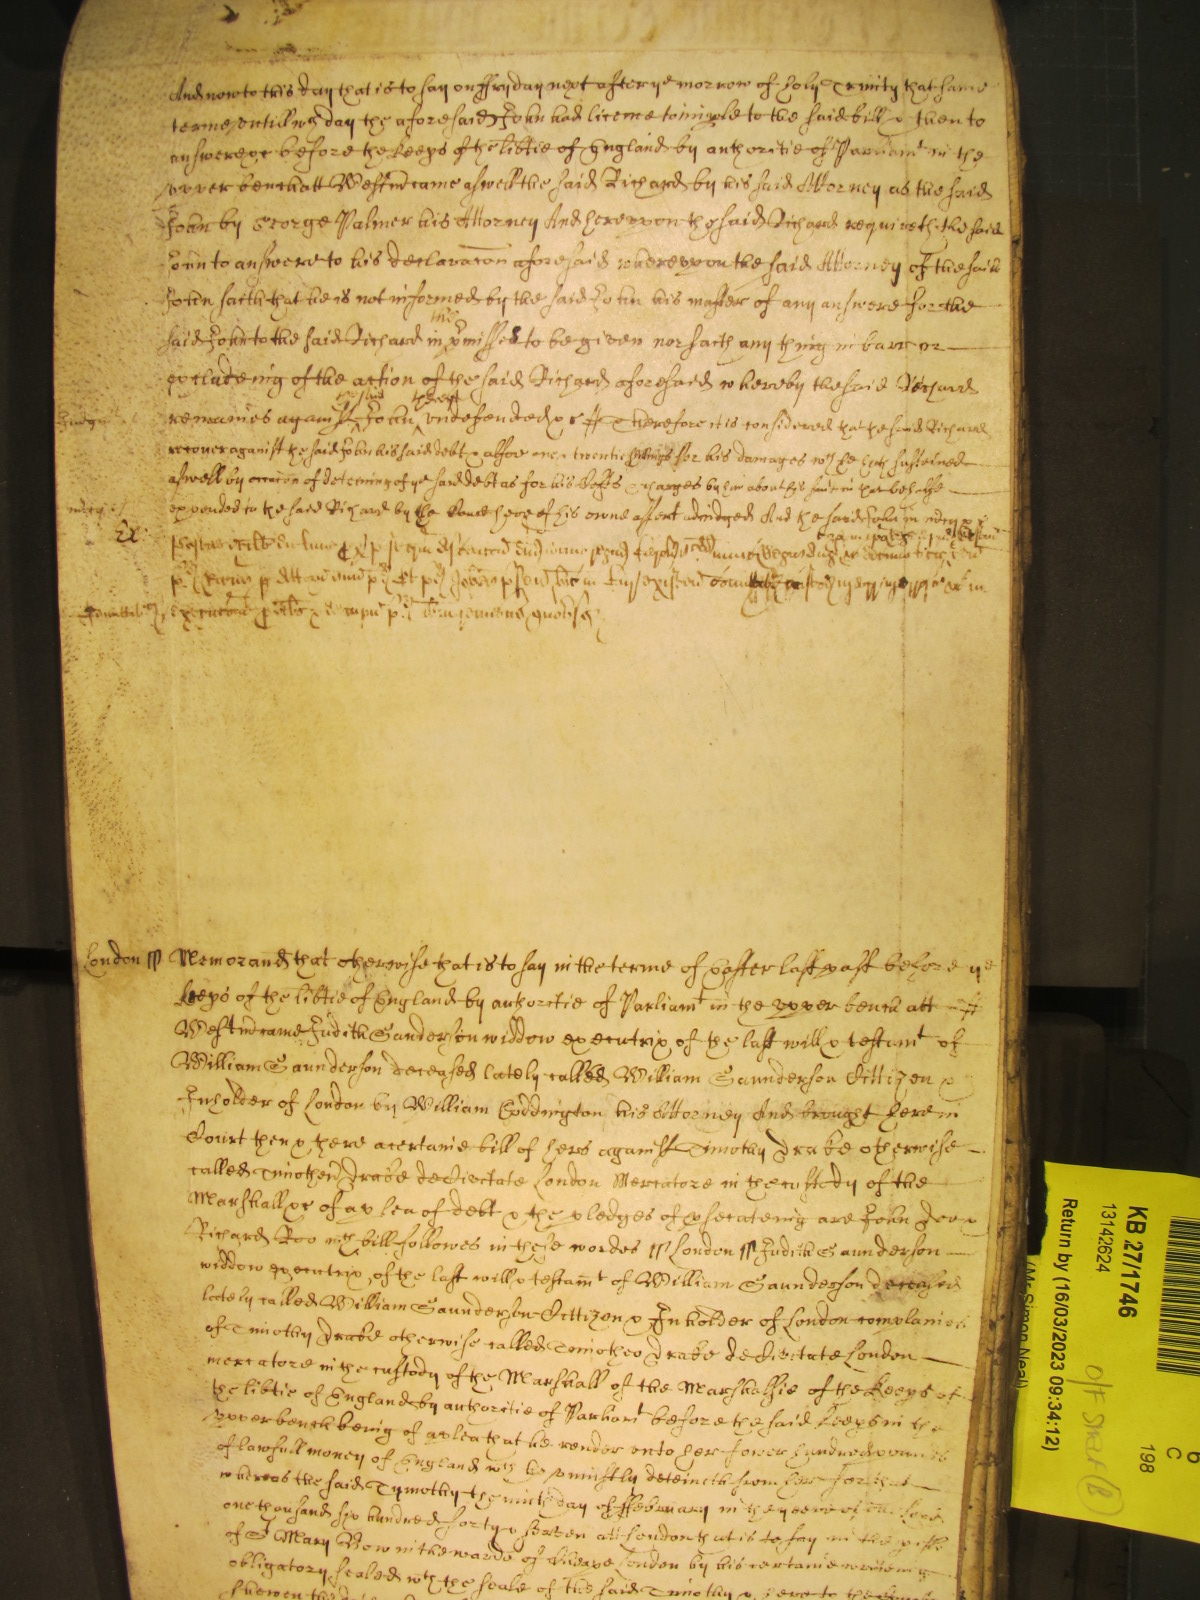 And now to this day that is to say on ffryday next after ye morrow of holy Trinity that same
terme untill wch day the aforesaid John had licence to imple to the said bill & then to
answere &c before the Keeps of the libtie of England by authoritie of Parliamt in the
upper bench att Westm came aswell the said Richard by his said Attorney as the said
John by George Palmer his Attorney And hereupon the said Richard requireth the said
John to answere to his declaracon aforesaid whereupon the said Attorney of the said
John saith that he is not informed by the said John his master of any answere for the
said John to the said Richard in the pmisses to be given nor saith any thing in barr or
excludeing of the action of the said Richard aforesaid whereby the said Richard
Judgmt remaines against the said John therein undefended &c # Therefore it is considered that the said Richard
recover against the said John his said debt & alsoe twentie shillings for his damages wch he hath susteined
aswell by occacion of deteineing of ye said debt as for his costs & charges by him about his suite in that behalfe
mercy expended to the said Richard by the Court here of his owne assent adiudged And the said John in mercy &c
Ex
London ss Memorand that otherwise that is to say in the terme of Easter last past before ye
Keeps of the libtie of England by authoritie of Parliamt in the upper bench att #
Westm came Judith Saunderson widdow executrix of the last will & testamt of
William Saunderson deceased lately called William Saunderson Cittizen &
Inholder of London by William Coddington his Attorney And brought here in
Court then & there a certaine bill of hers against Timothy Drake otherwise
called Timotheu Drake de Civitate London Mercatore in the custody of the
Marshall &c of a plea of debt & the pledges of psecuteing are John Doe &
Richard Roo wch bill followes in these wordes ss London ss Judith Saunderson
widdow executrix of the last will & testamt of William Saunderson deceased
lately called William Saunderson Cittizen & Inholder of London complaines
of Timothy Drake otherwise called Timotheo Drake de Civitate London
mercatore in the custody of the Marshall of the Marshalsie of the Keeps of
the libtie of England by authoritie of Parliamt before the said Keeps in the
upper bench being of a plea that he render unto her fower hundred pounds
of lawfull money of England wch he uniustly deteineth from her for that
whereas the said Tymothy the ninth day of ffebruary in the yeere of our Lord
one thousand six hundred forty & seaven att London that is to say in the pish
of St Mary Bow in the warde of Cheape London by his certaine writeing
obligatory sealed wth the seale of the said Timothy & here to the Court
KB 27/1746
13142624
Return by (16/03/2023 09:34:12)
(Mr Simon Neal)
C
198